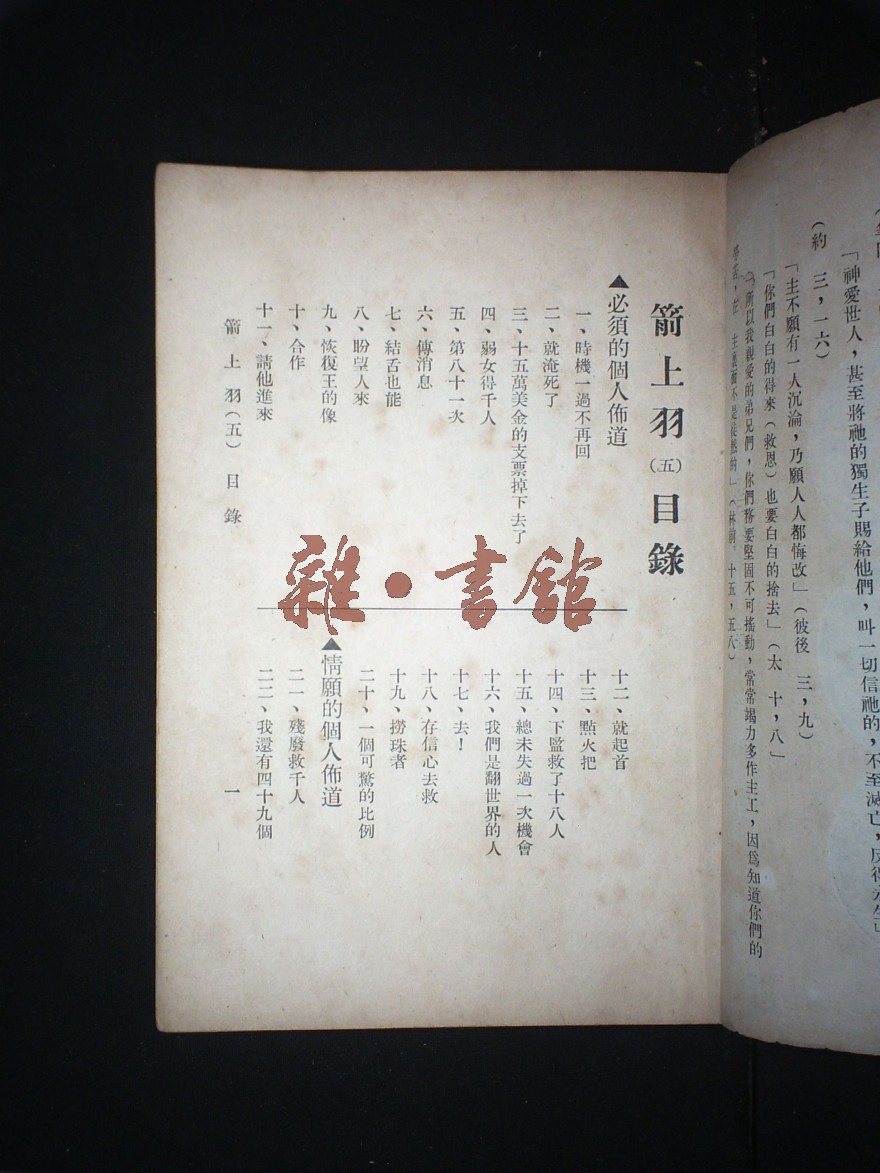 「神愛世人，甚至將祂的獨生子賜給他們，叫一切信祂的，不至滅亡，反得永生」
（約　三，一六）
「主不願有一人沉淪，乃願人人都悔改」（彼後　三，九）
「你們白白的得來（救恩）也要白白的捨去」（太　十，八）
「所以我親愛的弟兄們，你們務要堅固不可搖動，常常竭力多作主工，因爲知道你們的
勞苦，在　主裏面不是徒然的」（林前。十五，五八）
箭上羽（五）目錄
▲必須的個人佈道
一、時機一過不再回
二、就淹死了
三、十五萬美金的支票掉下去了
四、弱女得千人
五、第八十一次
六、傳消息
七、結舌也能
八、盼望人來
九、恢復王的像
十、合作
十一、請他進來
十二、就起首
十三、點火把
十四、下監救了十八人
十五、總未失過一次機會
十六、我們是翻世界的人
十七、去！
十八、存信心去救
十九、撈珠者
二十、一個可驚的比例
▲情願的個人佈道
二一、殘廢救千人
二二、我還有四十九個
箭上羽（五）目錄
一
雜·書館